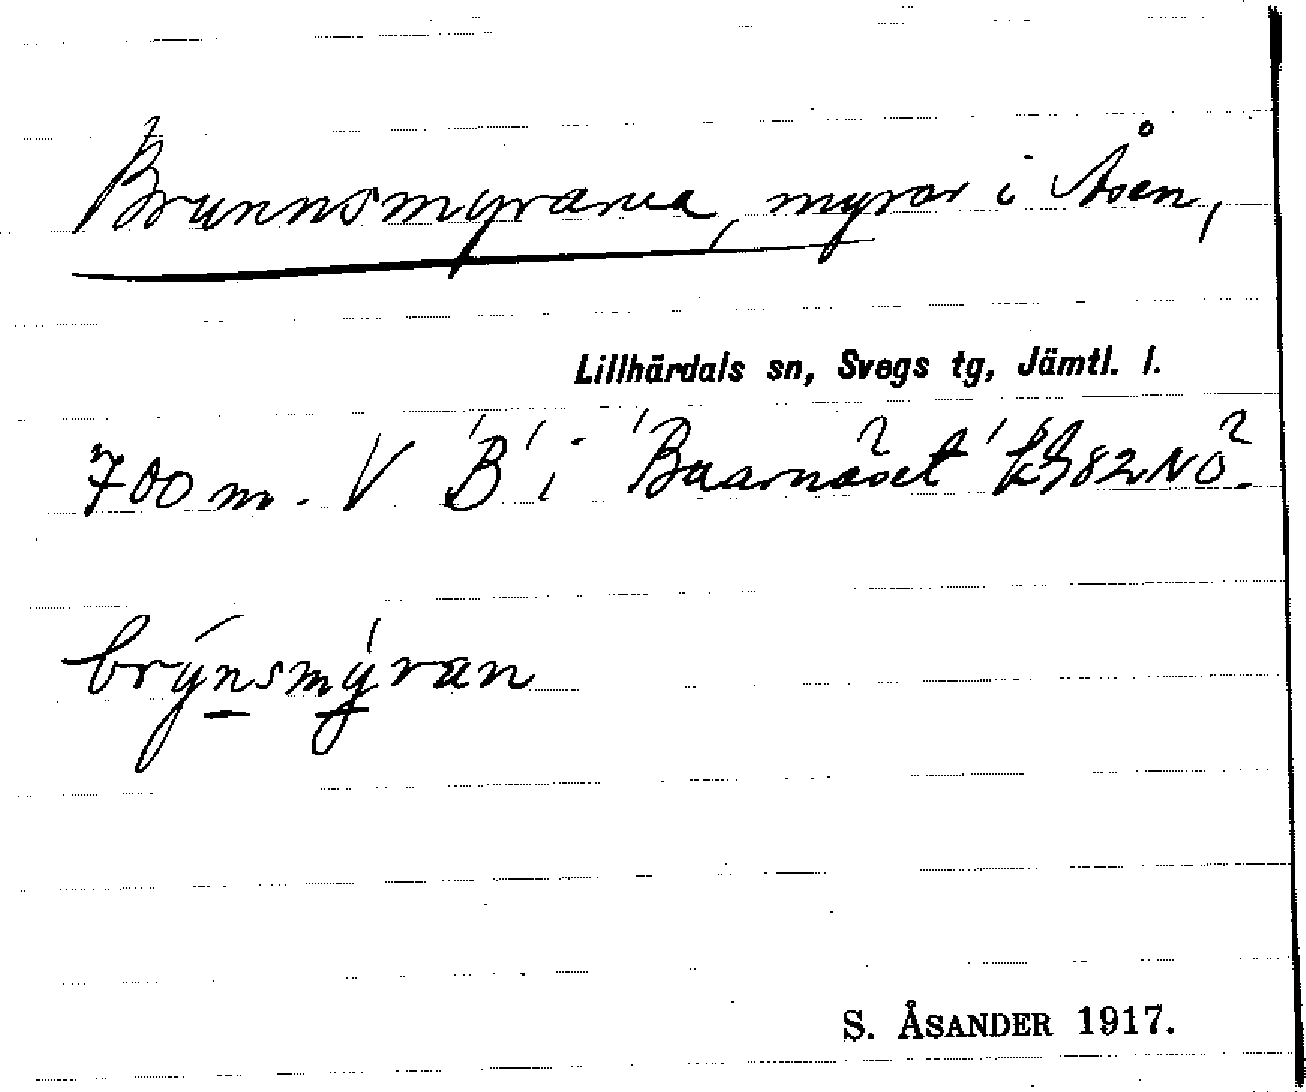 Brunnsmyrarna, myrar i Åsen,
Lillhärdals sn, Svegs tg, Jämtl. l.
700 m. V 'B' i 82 NÖ.
brýnsmýran
S. ÅSANDER 1917.